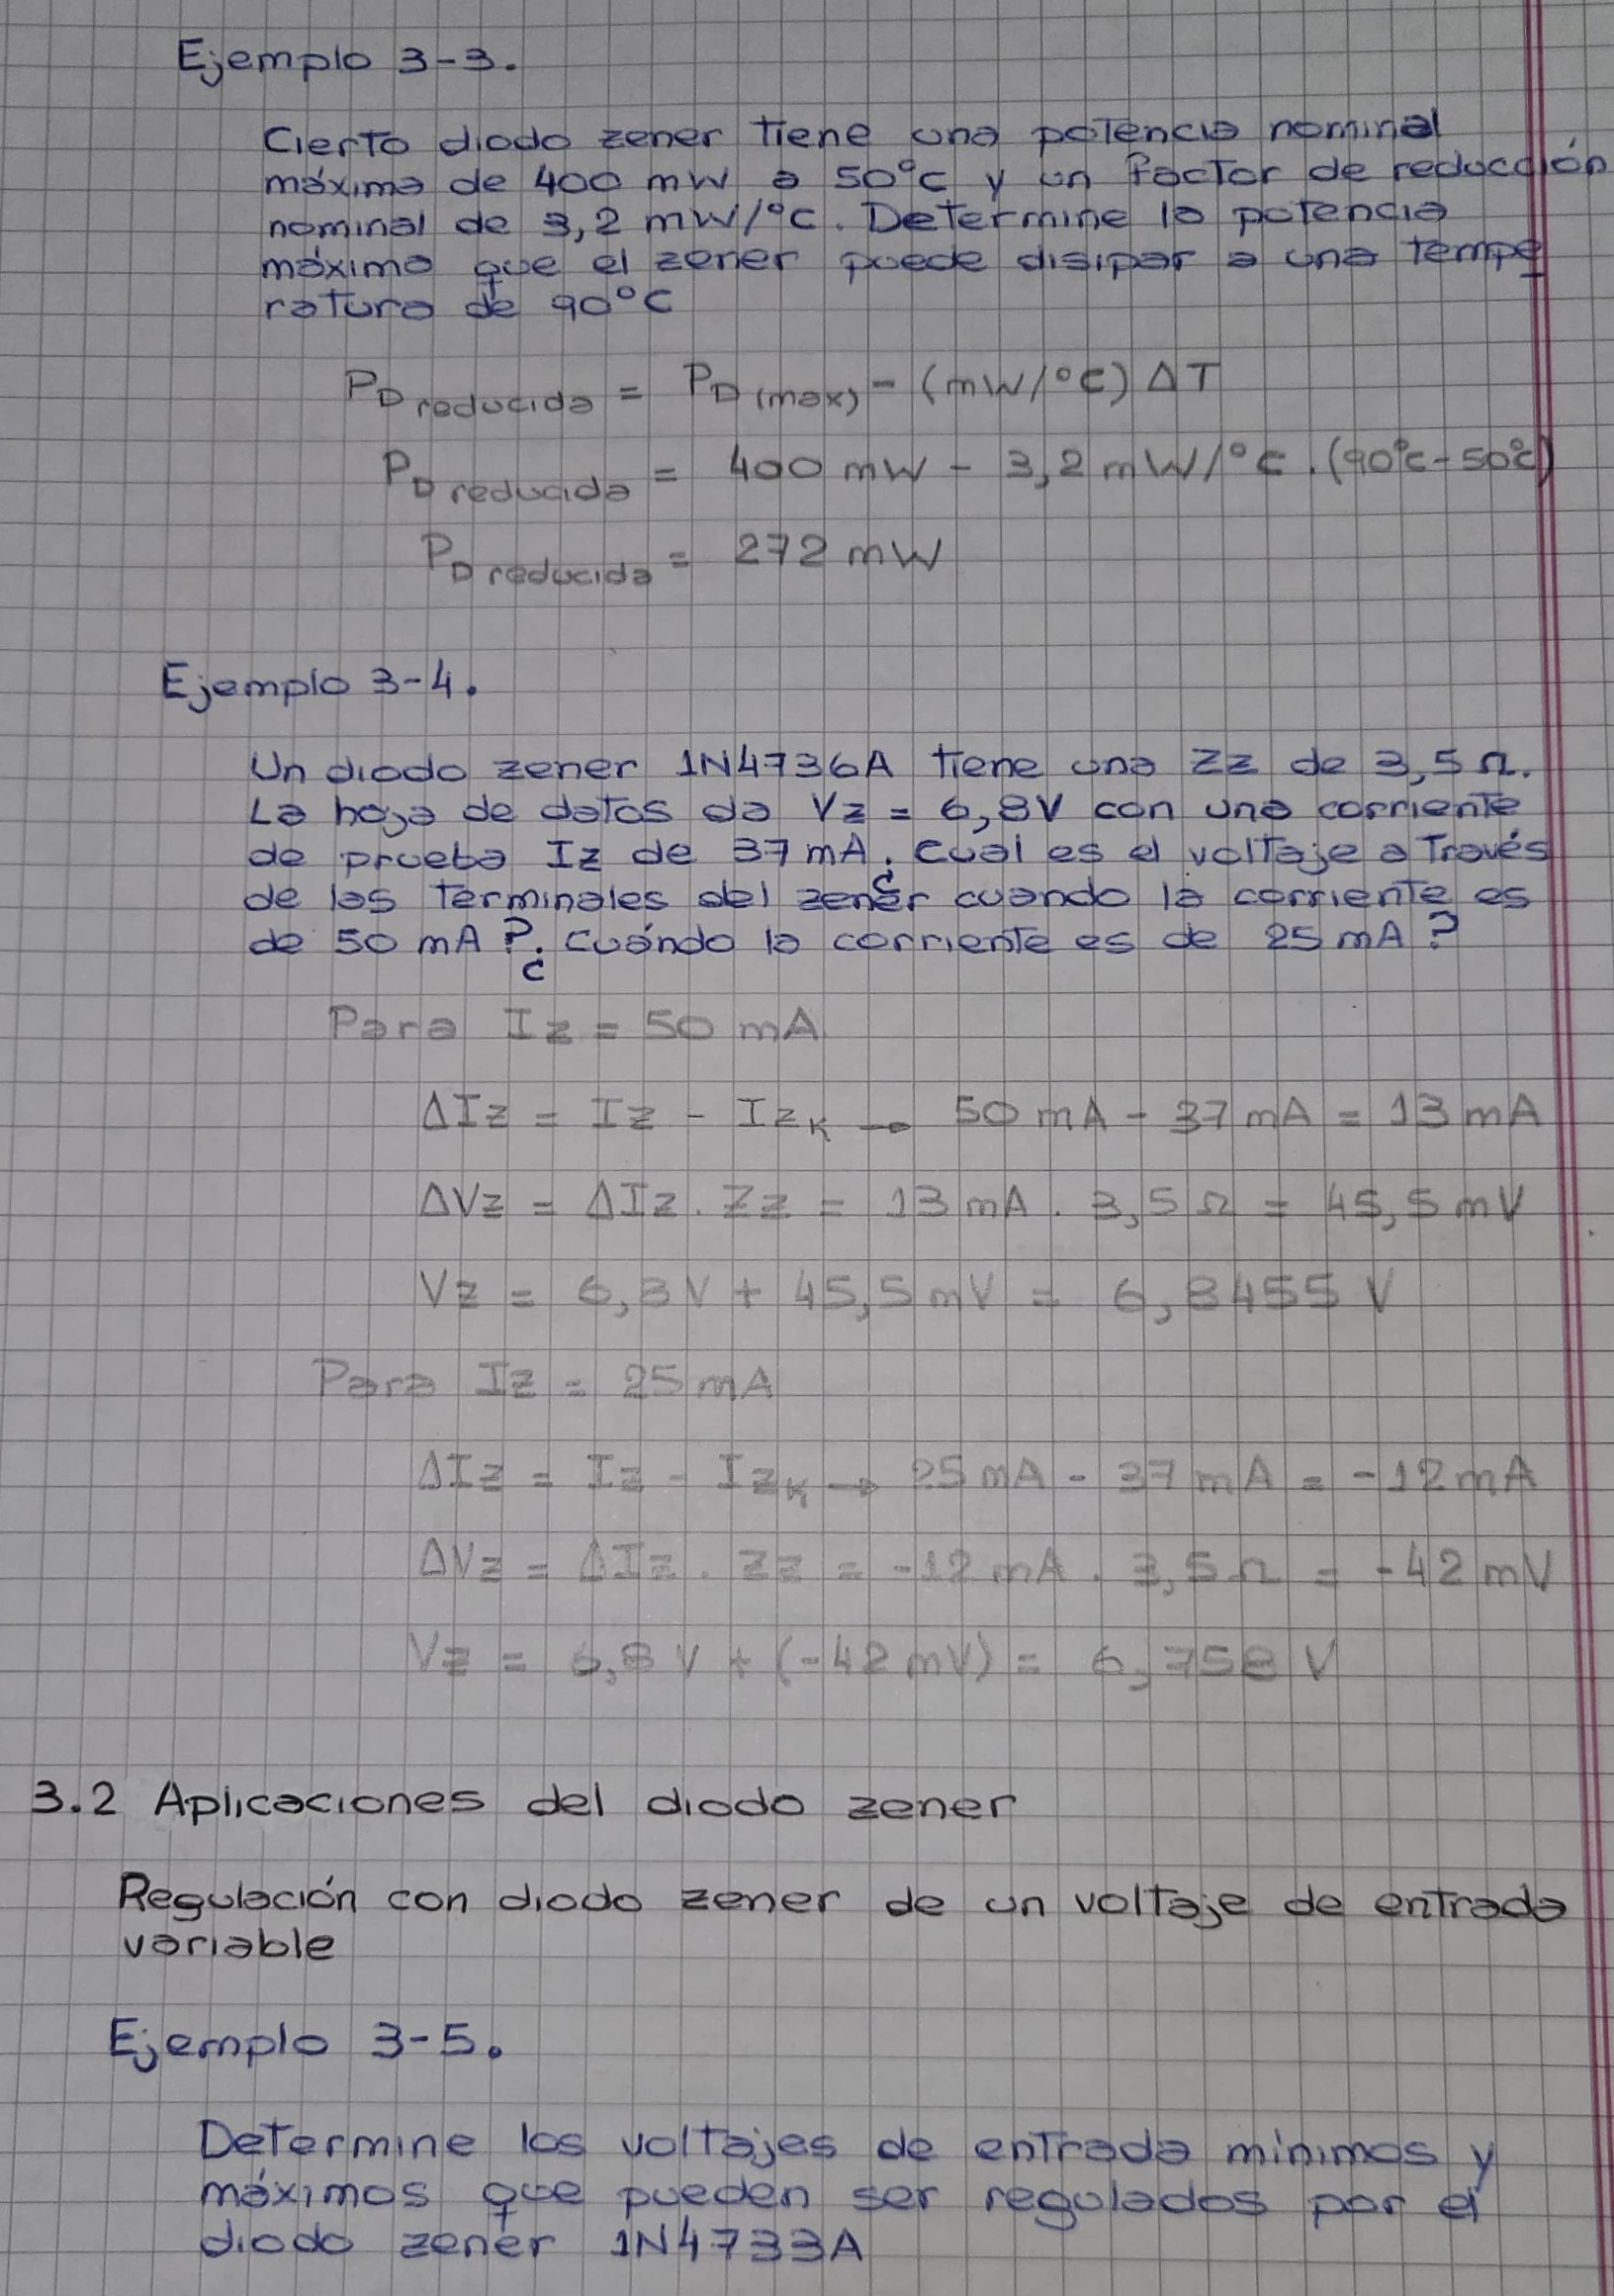 Ejemplo 3-3.
Cierto diodo zener tiene una potencia nominal
máxima de 400 mW a 50°C y un factor de reducción
nominal de 3,2 mW/°C. Determine la potencia
máxima que el zener puede disipar a una tempe
ratura de 90°C
PD reducida = PD (max) - (mW/°C) ΔT
PD reducida = 400 mW - 3,2 mW/°C . (90°C - 50°C)
PD reducida = 272 mW
Ejemplo 3-4.
Un diodo zener 1N4736A tiene una Zz de 3,5 Ω.
La hoja de datos da Vz = 6,8V con una corriente
de prueba Iz de 37 mA. ¿Cual es el voltaje a través
de las terminales del zener cuando la corriente es
de 50 mA?. ¿Cuándo la corriente es de 25 mA?
Para Iz = 50 mA
ΔIz = Iz - IzK → 50 mA - 37 mA = 13 mA
ΔVz = ΔIz . Zz = 13 mA . 3,5 Ω = 45,5 mV
Vz = 6,8V + 45,5 mV = 6,8455 V
Para Iz = 25 mA
ΔIz = Iz - IzK → 25 mA - 37 mA = -12 mA
ΔVz = ΔIz . Zz = -12 mA . 3,5 Ω = -42 mV
Vz = 6,8 V + (-42 mV) = 6,758 V
3.2 Aplicaciones del diodo zener
Regulación con diodo zener de un voltaje de entrada
variable
Ejemplo 3-5.
Determine los voltajes de entrada mínimos y
máximos que pueden ser regulados por el
diodo zener 1N4733A